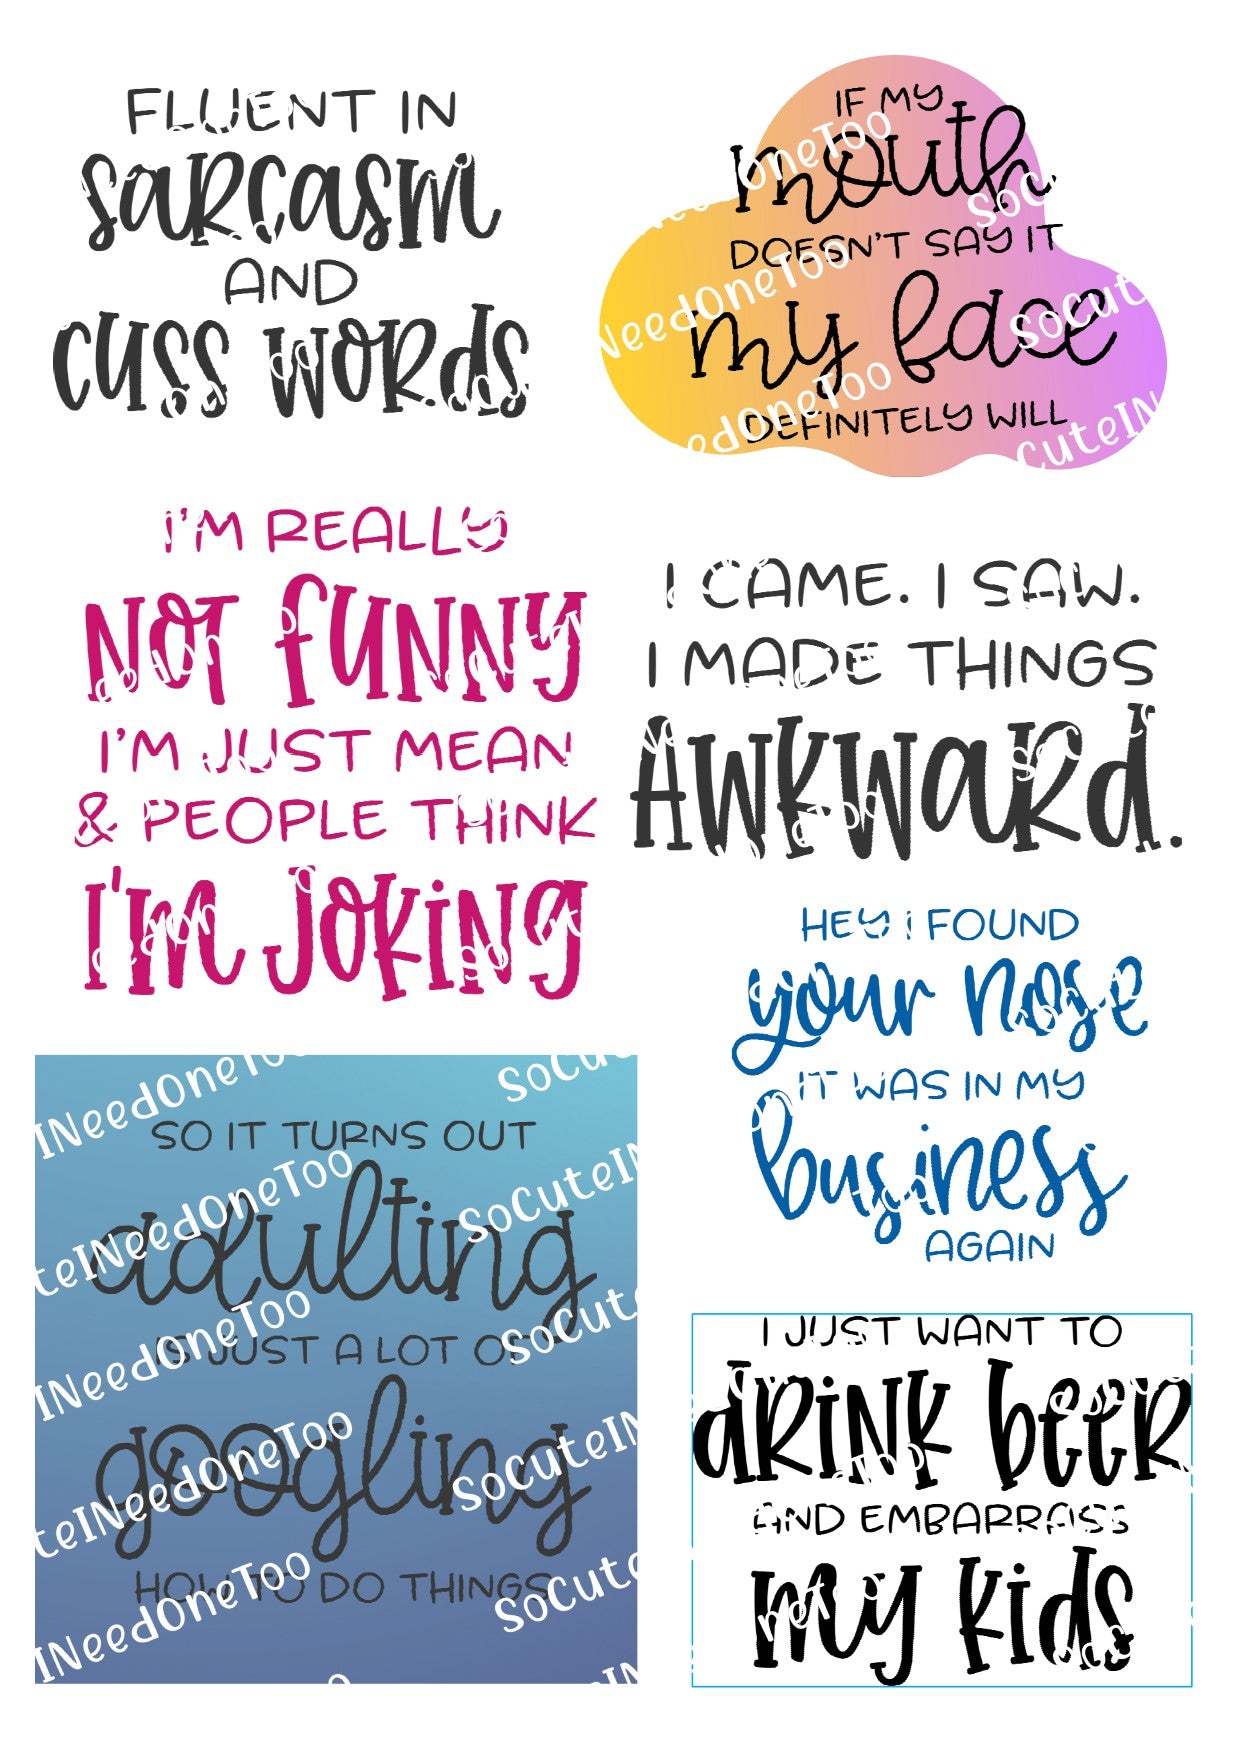 FLUENT IN
sarcasm
AND
cuss words
IF MY
mouth
DOESN'T SAY IT
my face
DEFINITELY WILL
I'M REALLY
NOT FUNNY
I'M JUST MEAN
& PEOPLE THINK
I'M JOKING
I CAME. I SAW.
I MADE THINGS
AWKWARD.
HEY I FOUND
your nose
IT WAS IN MY
business
AGAIN
SO IT TURNS OUT
adulting
IS JUST A LOT OF
googling
HOW TO DO THINGS
I JUST WANT TO
drink beer
AND EMBARRASS
my kids
SoCuteINeedOneToo